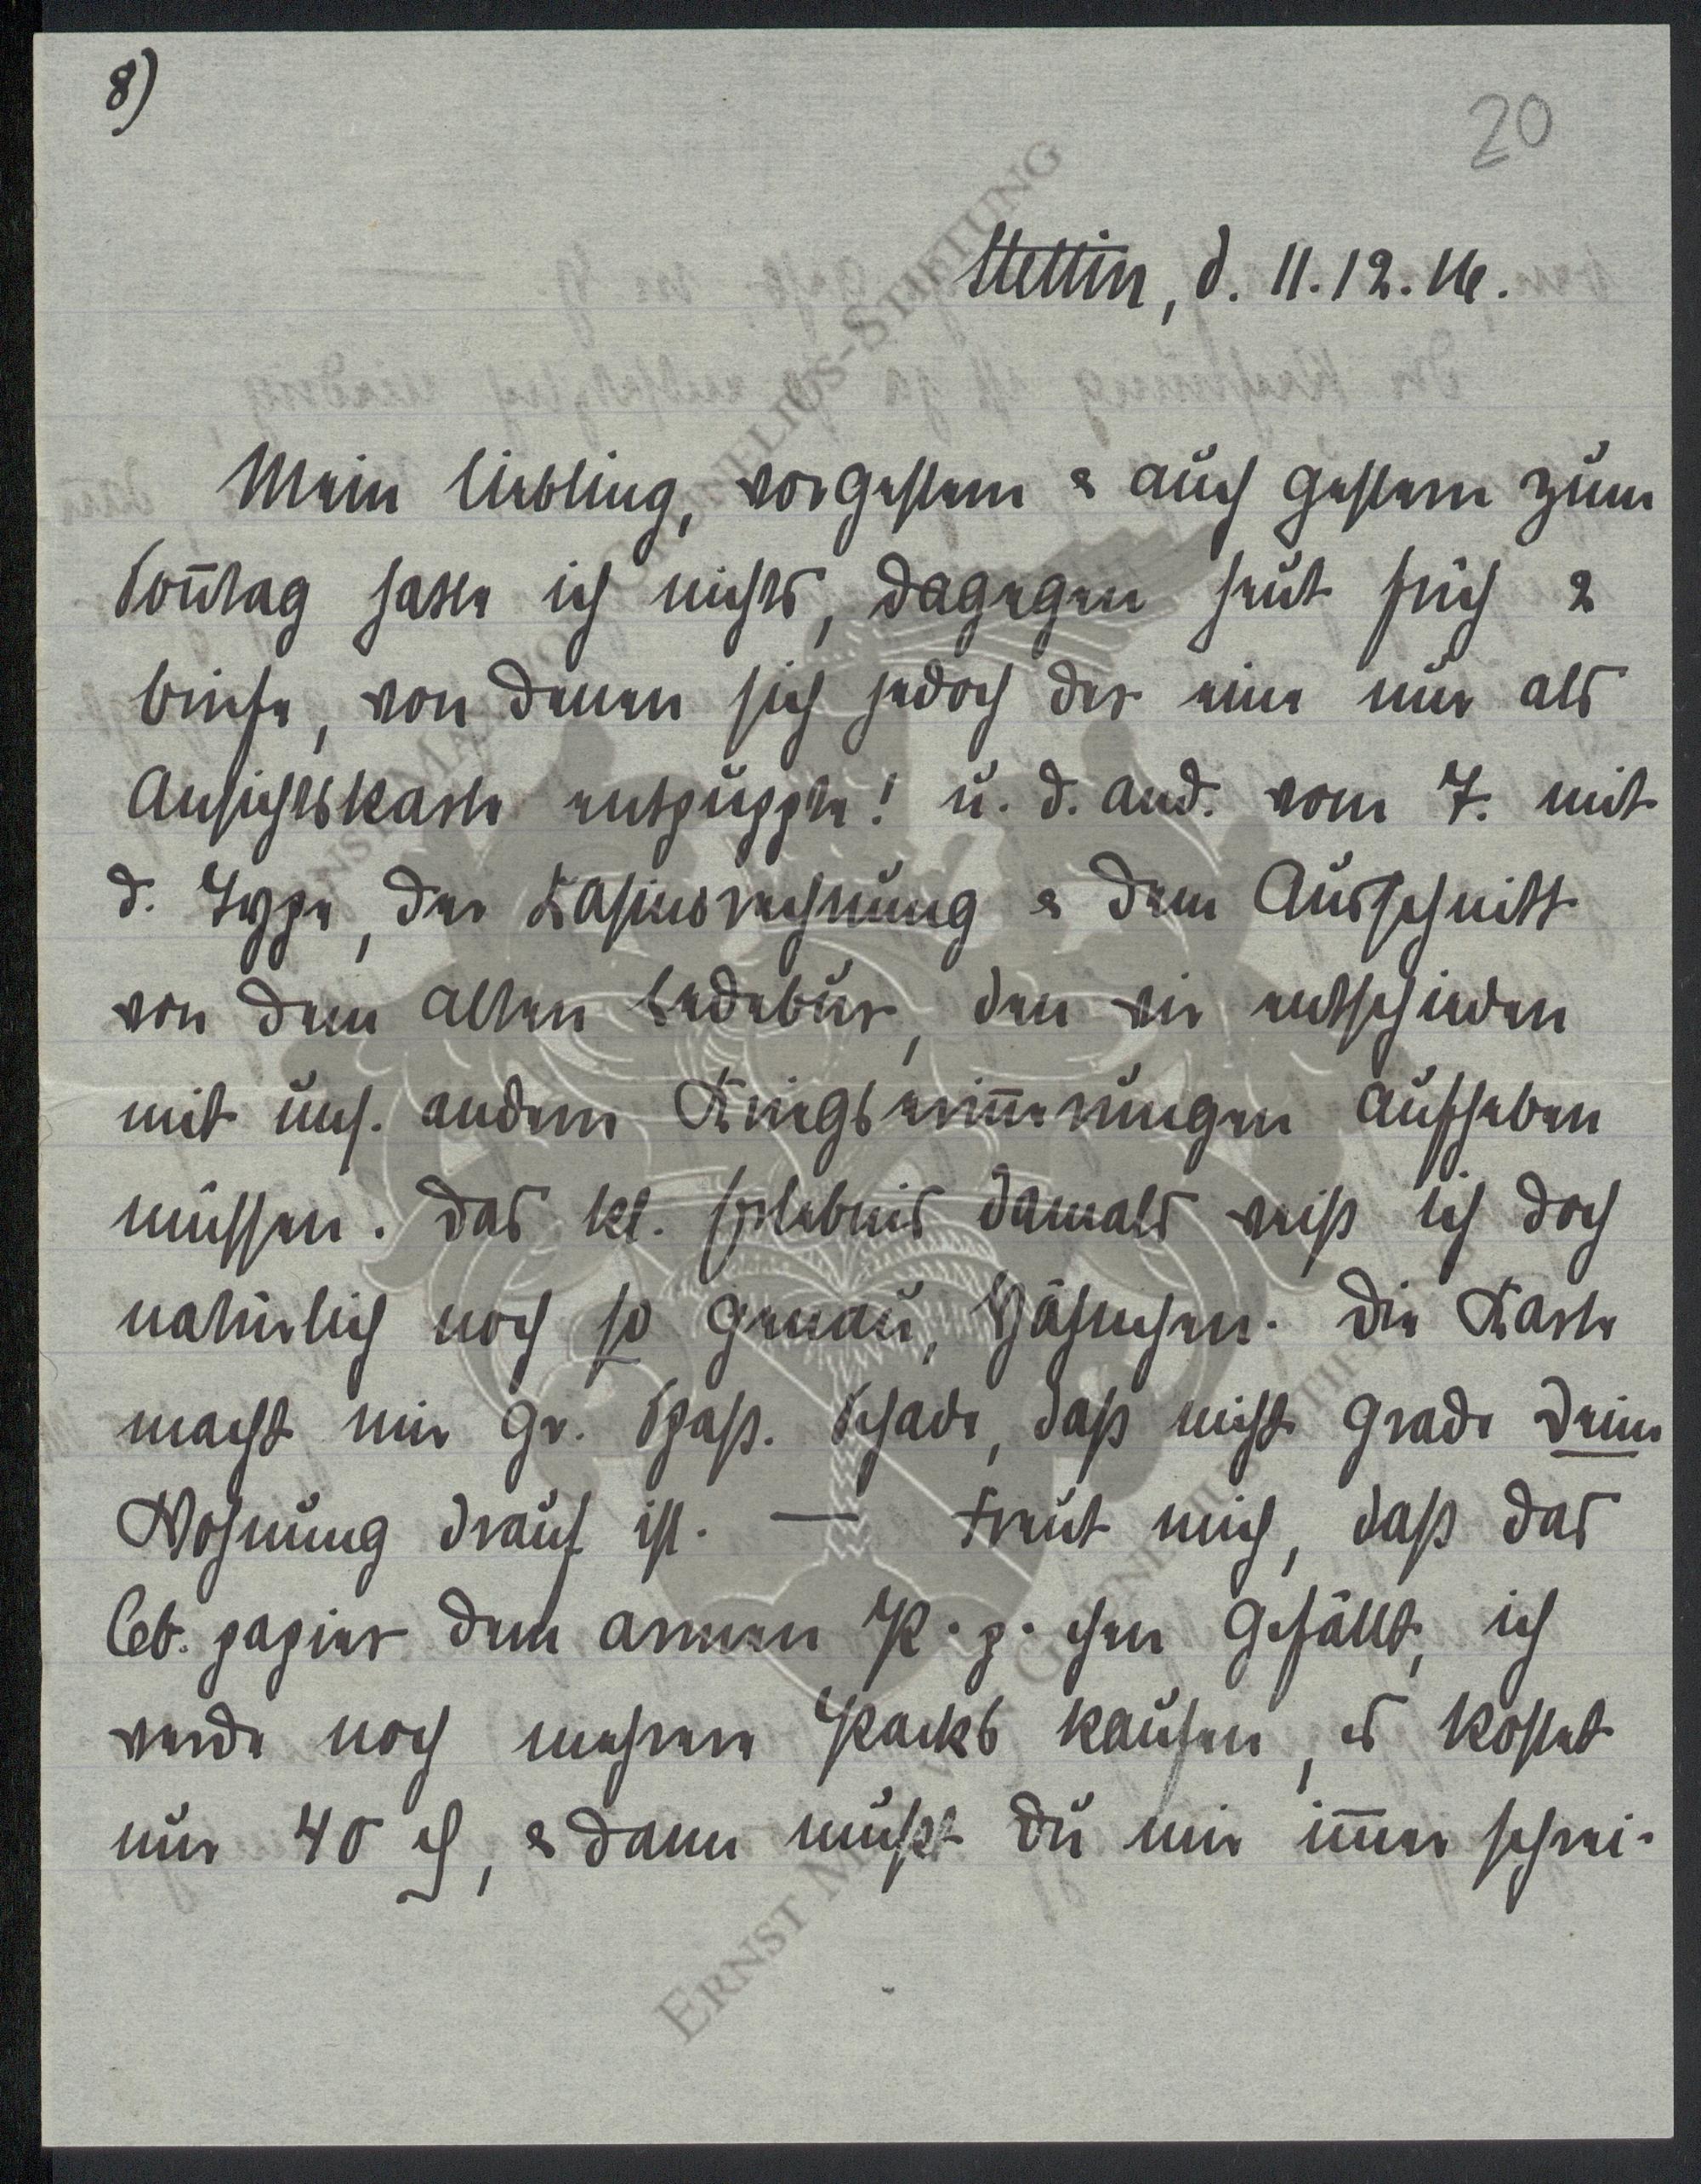 8)
20
Stettin, d. 11.12.16.
Mein Liebling, vorgestern & auch gestern zum
Soñtag hatte ich nichts, dagegen heut früh 2
Briefe, von denen sich jedoch der eine nur als
Ansichtskarte entpuppte! u. d. and. vom 7. mit
d. Type, der Kasinorechnung & dem Ausschnitt
von dem alten Ledebur, den wir entschieden
mit uns. andern Kriegseriñerungen aufheben
müssen. Das kl. Erlebnis damals weiß ich doch
natürlich noch so genau, Hähnchen. Die Karte
macht mir gr. Spaß. Schade, daß nicht grade Deine
Wohnung drauf ist. — Freut mich, daß das
papier dem armen K. p. chen gefällt, ich
werde noch mehrere Packs kaufen, es kostet
nur 40 ₰, & dann mußt Du mir im̃er schrei-
ERNST MAX VON GRUNELIUS-STIFTUNG
ERNST MAX VON GRUNELIUS-STIFTUNG